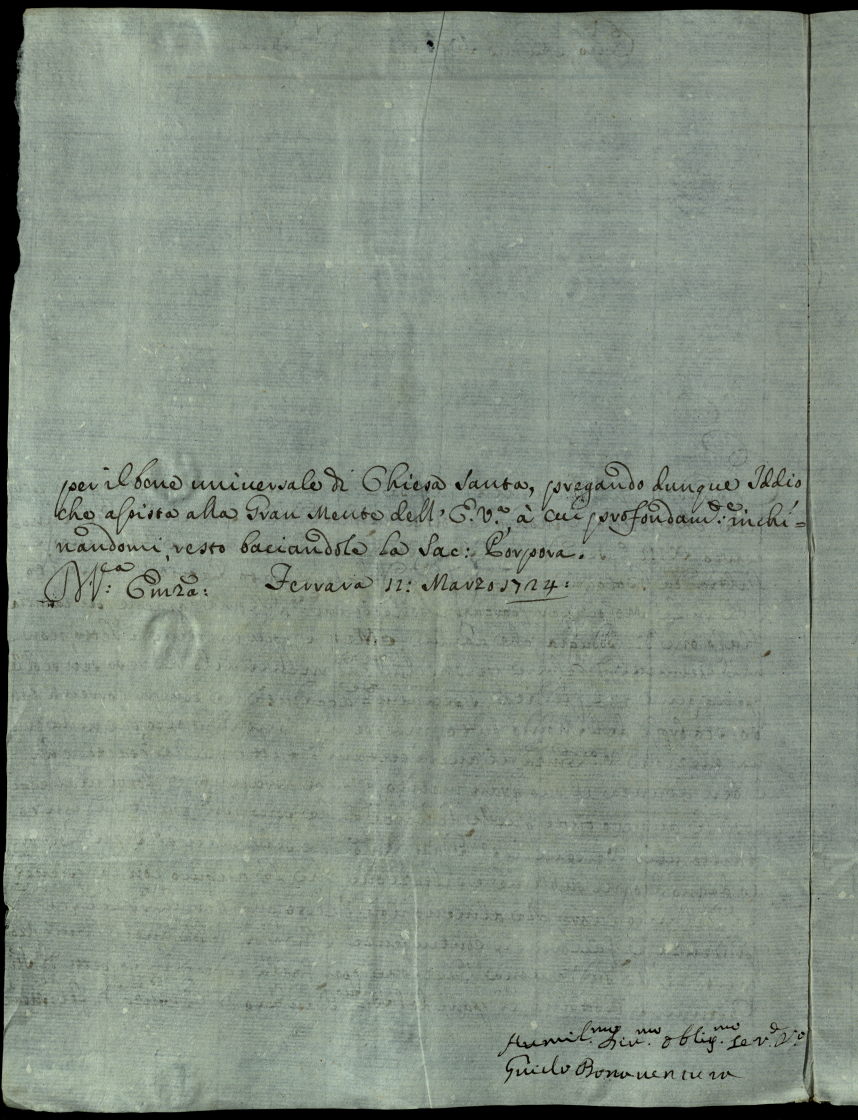 per il bene universale di Chiesa Santa, pregando dunque Iddio
che assista alla Gran Mente dell' E. V.ª à cui profondam.e inchi=
nandomi, resto baciandole la Sac: Porpora.
V.ca Emza: Ferrara 11: Marzo 1724:
Humil.mo Div.mo Oblig.mo Ser.d V.o
Guido Bonaventura